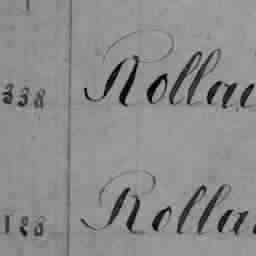 338 Rollai
128 Rolla